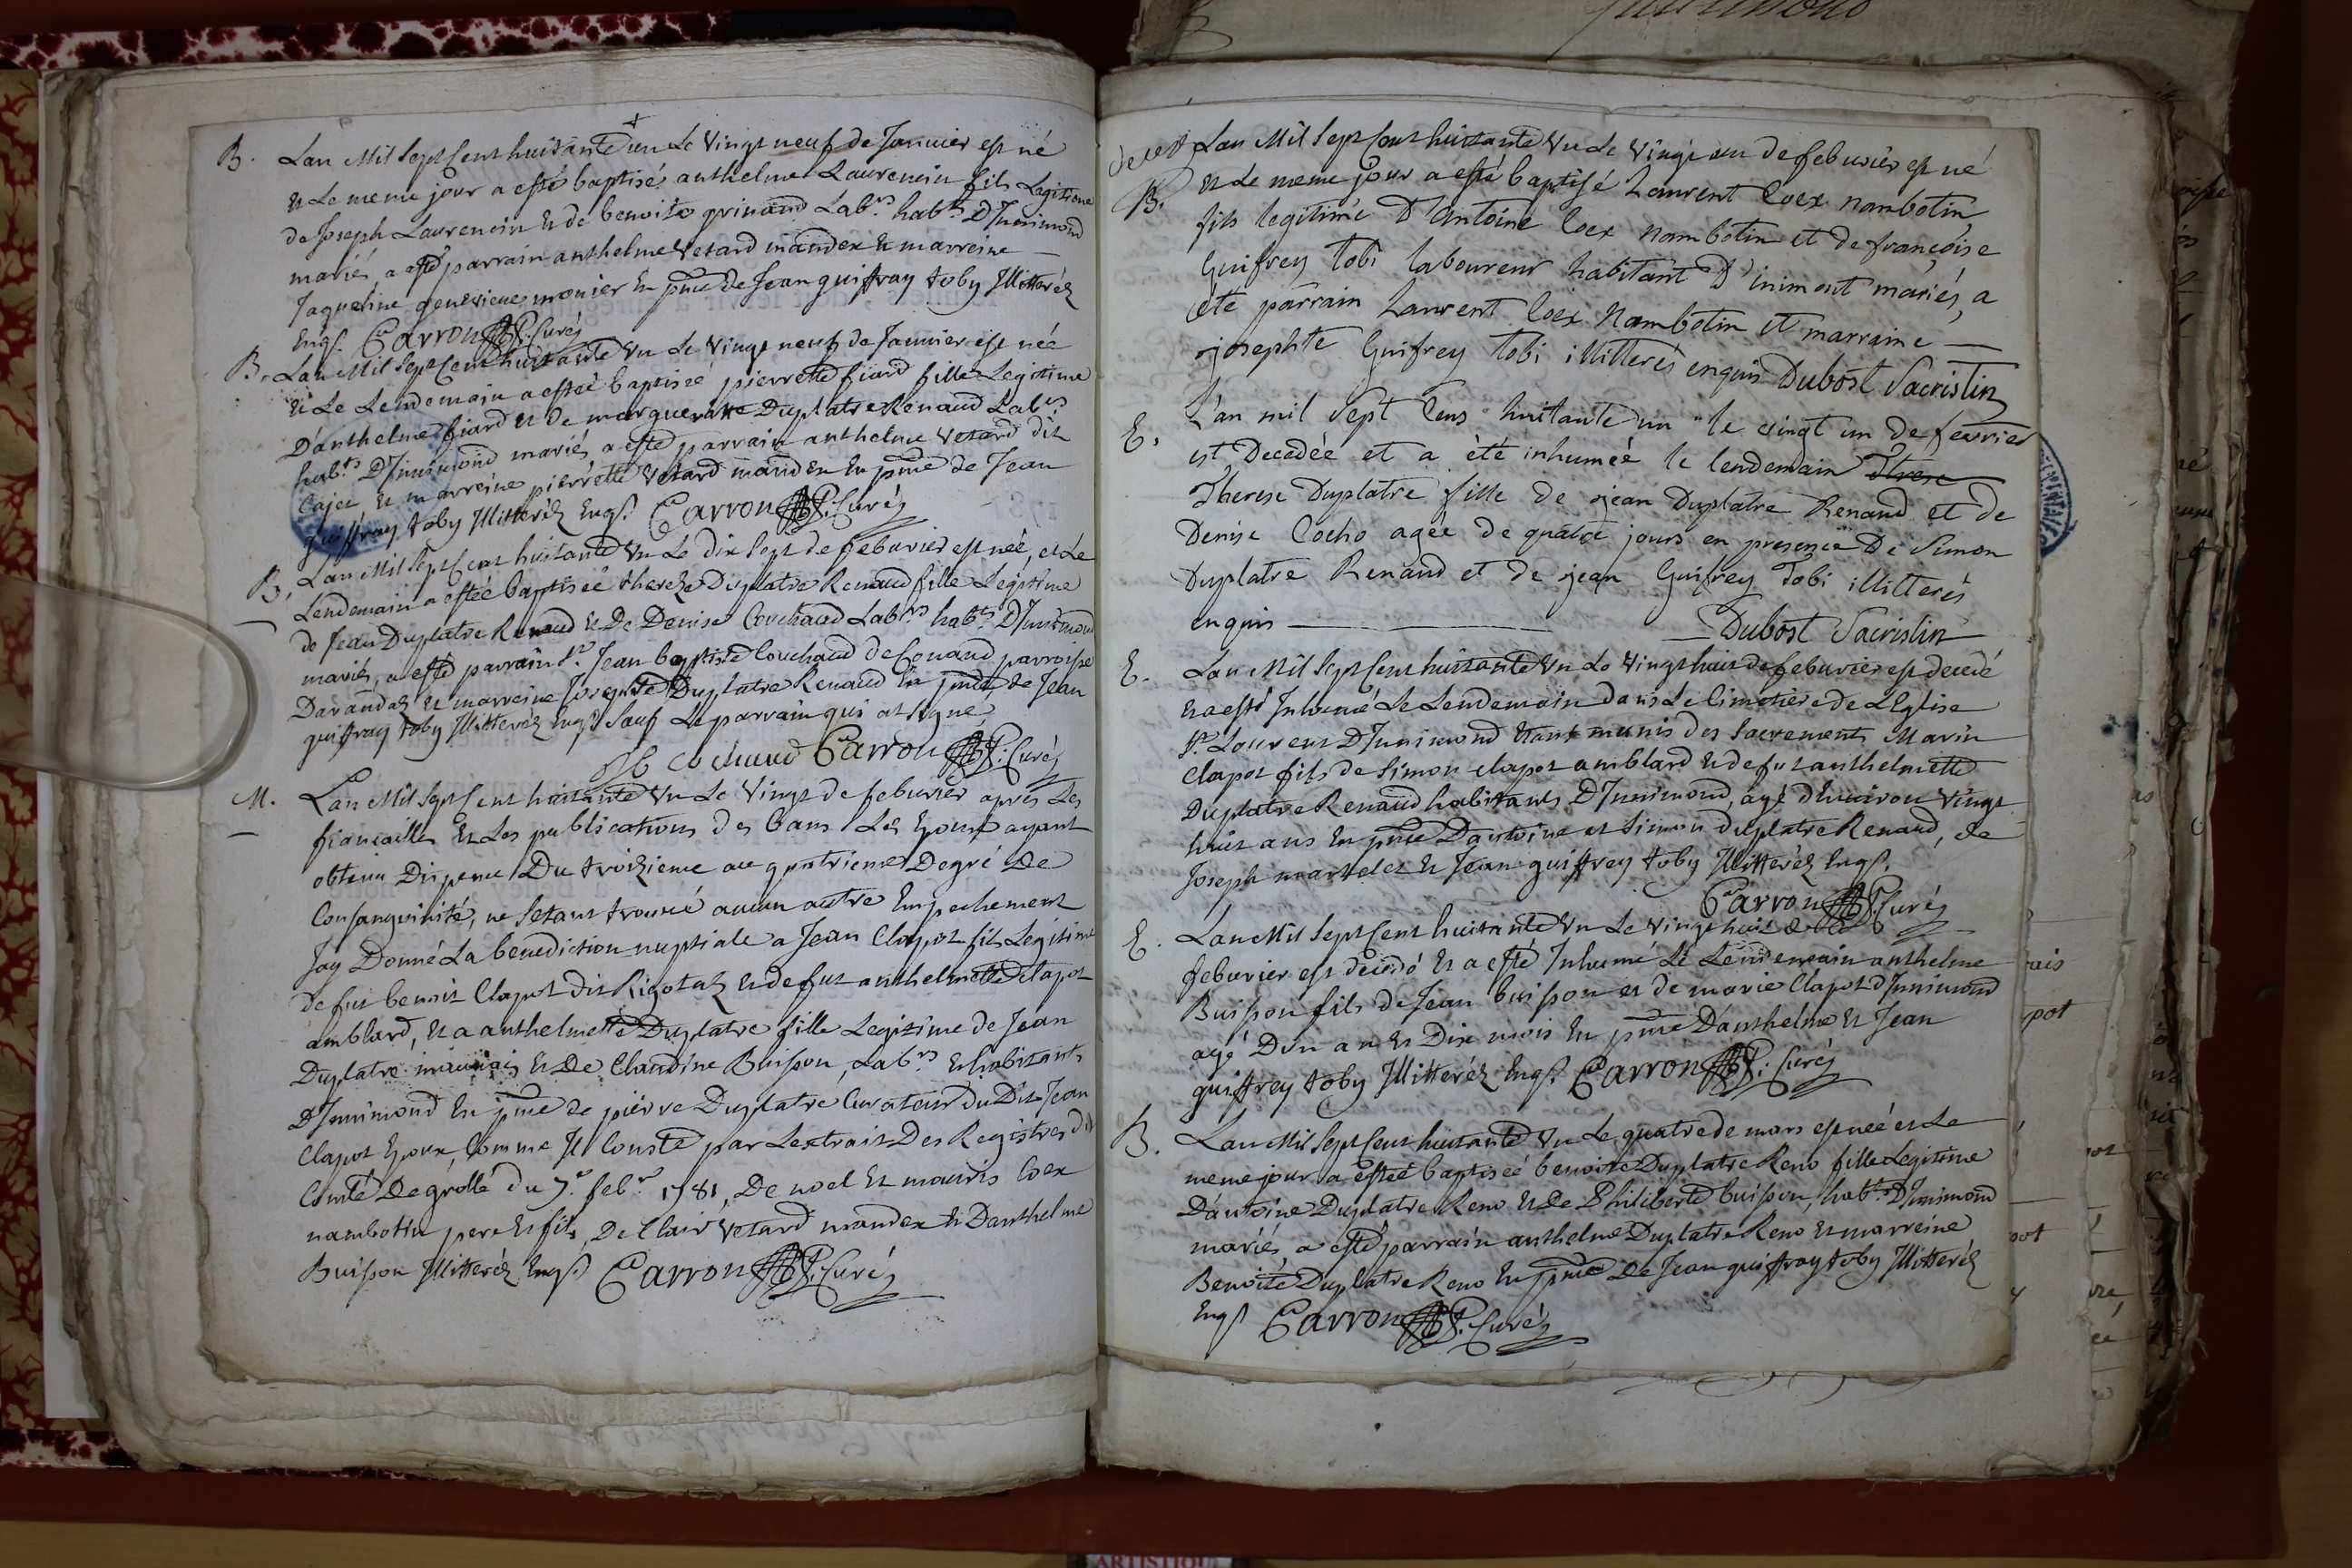 B. Lan Mil Sept Cent huitante un Le Vingt neuf de Janvier est né
et Le meme jour a esté baptisés anthelme Laurencin fils Legitime
de Joseph Laurencin et de benoite grinand Lab.rs hab.ts D'Innimond
mariés a esté parrain anthelme Vetard mandex et marreine
Jaqueline genevieve monier En pnce de Jean guiffray toby Illitteréz
Enqs. Carron P. Curéz
B. Lan Mil Sept Cent huitante Un Le Vingt neuf de Janvier est née
et Le Lendemain a estéé baptiséé pierrette fiard fille Legitime
D'anthelme fiard et de marguerite Duplatre Renaud Lab.rs
hab.ts D'Innimond mariés, a esté parrain anthelme Vetard dit
Cajet et marreine pierrette Vetard manden En pnce de Jean
guiffray toby Illitteréz Enqs. Carron P. Curéz
B. Lan Mil Sept Cent huitante Un Le dix Sept de febuvier est née, et Le
Lendemain a estéé baptiséé thereze Duplatre Renaud fille Legitime
de Jean Duplatre Renaud et De Denise Couchaud Lab.rs hab.ts D'Innimond
mariés, a esté parrain Sr. Jean baptiste Couchaud de Conand parroisse
Darandaz et marreine Josephte Duplatre Renaud En pnce de Jean
guiffray toby Illitteréz Enqs. Sauf Le parrain qui at signe,
Cochaud Carron P. Curéz
M. Lan Mil Sept Cent huitante Un Le Vingt de febuvier apres Les
fiancailles et Les publications des bans Les Epoux ayant
obtenu Dispense Du troizieme au quatrieme Degré De
Consanguinité, ne Setant trouvé aucun autre Empechement
Jay Donné La benediction nuptiale a Jean Clapot fils Legitime
de fut benoit Clapot dit Rigotaz et de fut anthelmette Clapot
amblard, et a anthelmette Duplatre fille Legitime de Jean
Duplatre mauvais et De Claudine Buisson, Lab.rs et habitants
D'Innimond En pnce de pierre Duplatre Curateur du Dit Jean
Clapot Epoux, Comme Il Conste par Lextrait Des Registres du
Comté De grollé du 7.e feb.r 1781, De noel et mauris Coex
nambotin pere et fils, De Clair Vetard mandex et D'anthelme
Buisson Illitteréz Enqs. Carron P. Curéz
B. Lan Mil Sept Cent huitante Un Le Vingt un de febuvier est né
et Le meme jour a esté baptisé Laurent Coex nambotin
fils legitime D'antoine Coex nambotin et de françoise
Guifrey Tobi laboureur habitant D'inimont mariés, a
été parrain Laurent Coex Nambotin et marraine
josephte Guifrey Tobi illitterés enquis Dubost Sacristin
E. L'an mil Sept Cens huitante un le vingt un de fevrier
est Decadée et a été inhumée le lendemain
Therese Duplatre fille de jean Duplatre Renand et de
Denise Cocho agée de quatre jours en presence De Simon
Duplatre Renand et de jean Guifrey Tobi illitterés
enquis Dubost Sacristin
E. Lan Mil Sept Cent huitante Un Le Vingt huit de febuvier est decedé
et a esté Inhumé Le Lendemain dans Le Cimetiere de LEglise
St. Laurent D'Innimond Etant munis des Sacrements Marin
Clapot fils de Simon Clapot amblard et de fut anthelmette
Duplatre Renaud habitants D'Innimond, agé d'Environ Vingt
huit ans En pnce D'antoine et Simon duplatre Renaud, de
Joseph martelet et Jean guiffrey toby Illitteréz Enqs.
Carron P. Curéz
E. Lan Mil Sept Cent huitante Un Le Vingt huit de
febuvier est decedé et a esté Inhumé Le Lendemain anthelme
Buisson fils de Jean buisson et de marie Clapot d'Innimond
agé D'un an et Dix mois En pnce D'anthelme et Jean
guiffrey toby Illitteréz Enqs. Carron P. Curéz
B. Lan Mil Sept Cent huitante Un Le quatre de mars est née et Le
meme jour a estéé baptiséé benoite Duplatre Reno fille Legitime
D'antoine Duplatre Reno et De Philiberte buisson, hab.ts D'Innimond
mariés, a esté parrain anthelme Duplatre Reno et marreine
Benoite Duplatre Reno En pnce De Jean guiffray toby Illitteréz
Enqs Carron P. Curéz